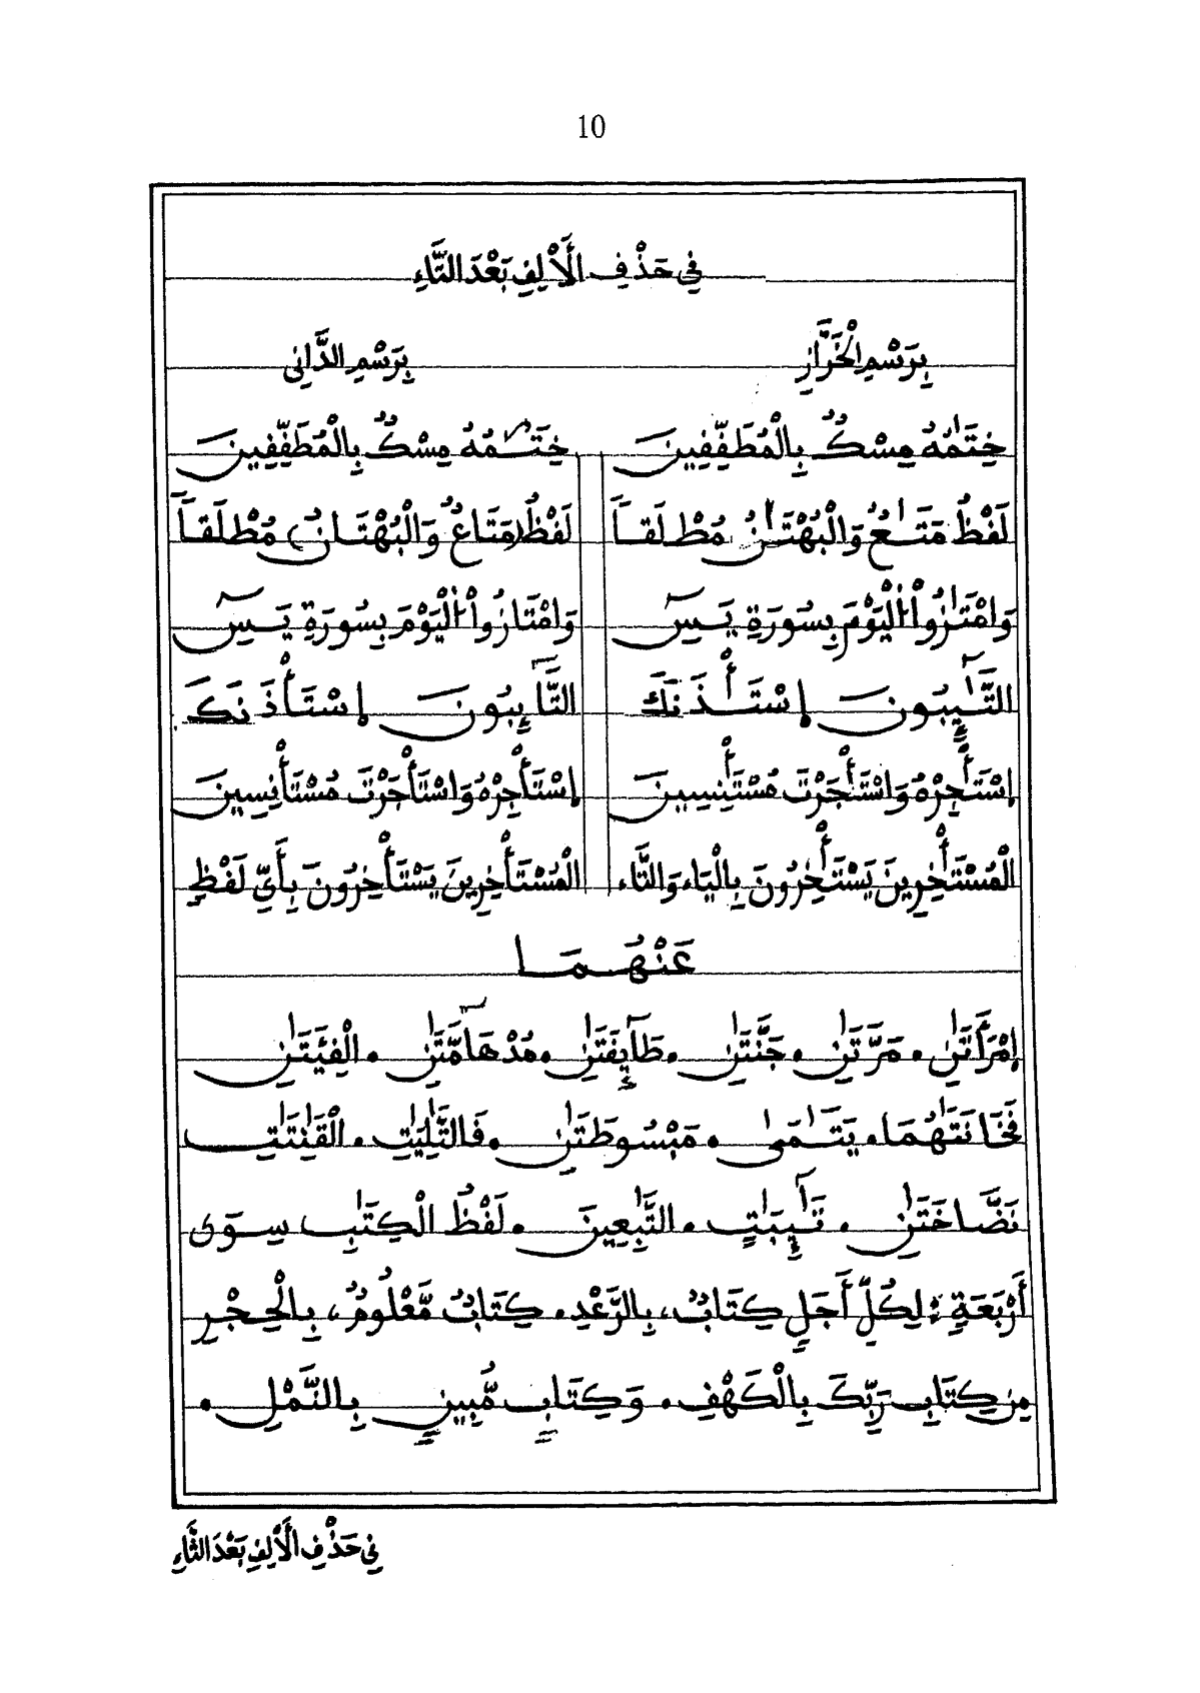 10
فِي حَذْفِ الْأَلِفِ بَعْدَ التَّاءِ
بِرَسْمِ الْخَرَّازِ بِرَسْمِ الدَّانِي
خِتَٰمُهُ مِسْكٌ بِالْمُطَفِّفِينَ خِتَٰمُهُ مِسْكٌ بِالْمُطَفِّفِينَ
لَفْظُ مَتَٰعٌ وَالْبُهْتَٰنُ مُطْلَقاً لَفْظُ (مَتَاعٌ وَالْبُهْتَانُ) مُطْلَقاً
وَامْتَٰزُواْ الْيَوْمَ بِسُورَةِ يَسِٓ وَامْتَازُواْ الْيَوْمَ بِسُورَةِ يَسِٓ
التَّٰٓئِبُونَ إِسْتَْٔذَنَكَ التَّآئِبُونَ إِسْتَأْذَنَكَ
إِسْتَْٔجِرْهُ وَاسْتَْٔجَرْتَ مُسْتَْٔنِسِينَ إِسْتَأْجِرْهُ وَاسْتَأْجَرْتَ مُسْتَأْنِسِينَ
الْمُسْتَْٔخِرِينَ يَسْتَْٔخِرُونَ بِالْيَاءِ وَالتَّاءِ الْمُسْتَأْخِرِينَ يَسْتَأْخِرُونَ بِأَيِّ لَفْظٍ
عَنْهُمَا
إِمْرَأَتَٰنِ • مَرَّتَٰنِ • جَنَّتَٰنِ • طَآئِفَتَٰنِ • مُدْهَآمَّتَٰنِ • الْفِئَتَٰنِ
فَخَانَتَٰهُمَا • يَتَٰمَىٰ • مَبْسُوطَتَٰنِ • فَالتَّٰلِيَٰتِ • الْقَٰنِتَٰتِ
نَضَّاخَتَٰنِ • تَٰٓئِبَٰتٍ • التَّٰبِعِينَ • لَفْظُ الْكِتَٰبِ سِوَى
أَرْبَعَةٍ : لِكُلِّ أَجَلٍ كِتَابٌ، بِالرَّعْدِ • كِتَابٌ مَّعْلُومٌ، بِالْحِجْرِ
مِن كِتَابِ رَبِّكَ بِالْكَهْفِ • وَكِتَابٍ مُّبِينٍ بِالنَّمْلِ •
فِي حَذْفِ الْأَلِفِ بَعْدَ الثَّاءِ